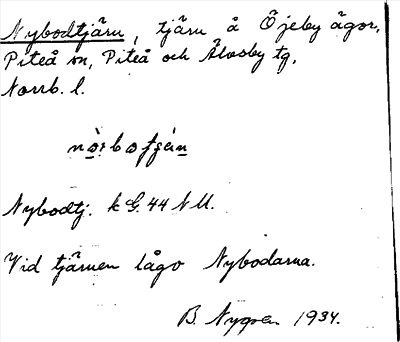 Nybodtjärn, tjärn å Öjeby ägor,
Piteå sn, Piteå och Älvsby tg,
Norrb. l.
Nybodtj. k G. 44 N M.
Vid tjärnen lågo Nybodarna.
B. Nygren 1934.